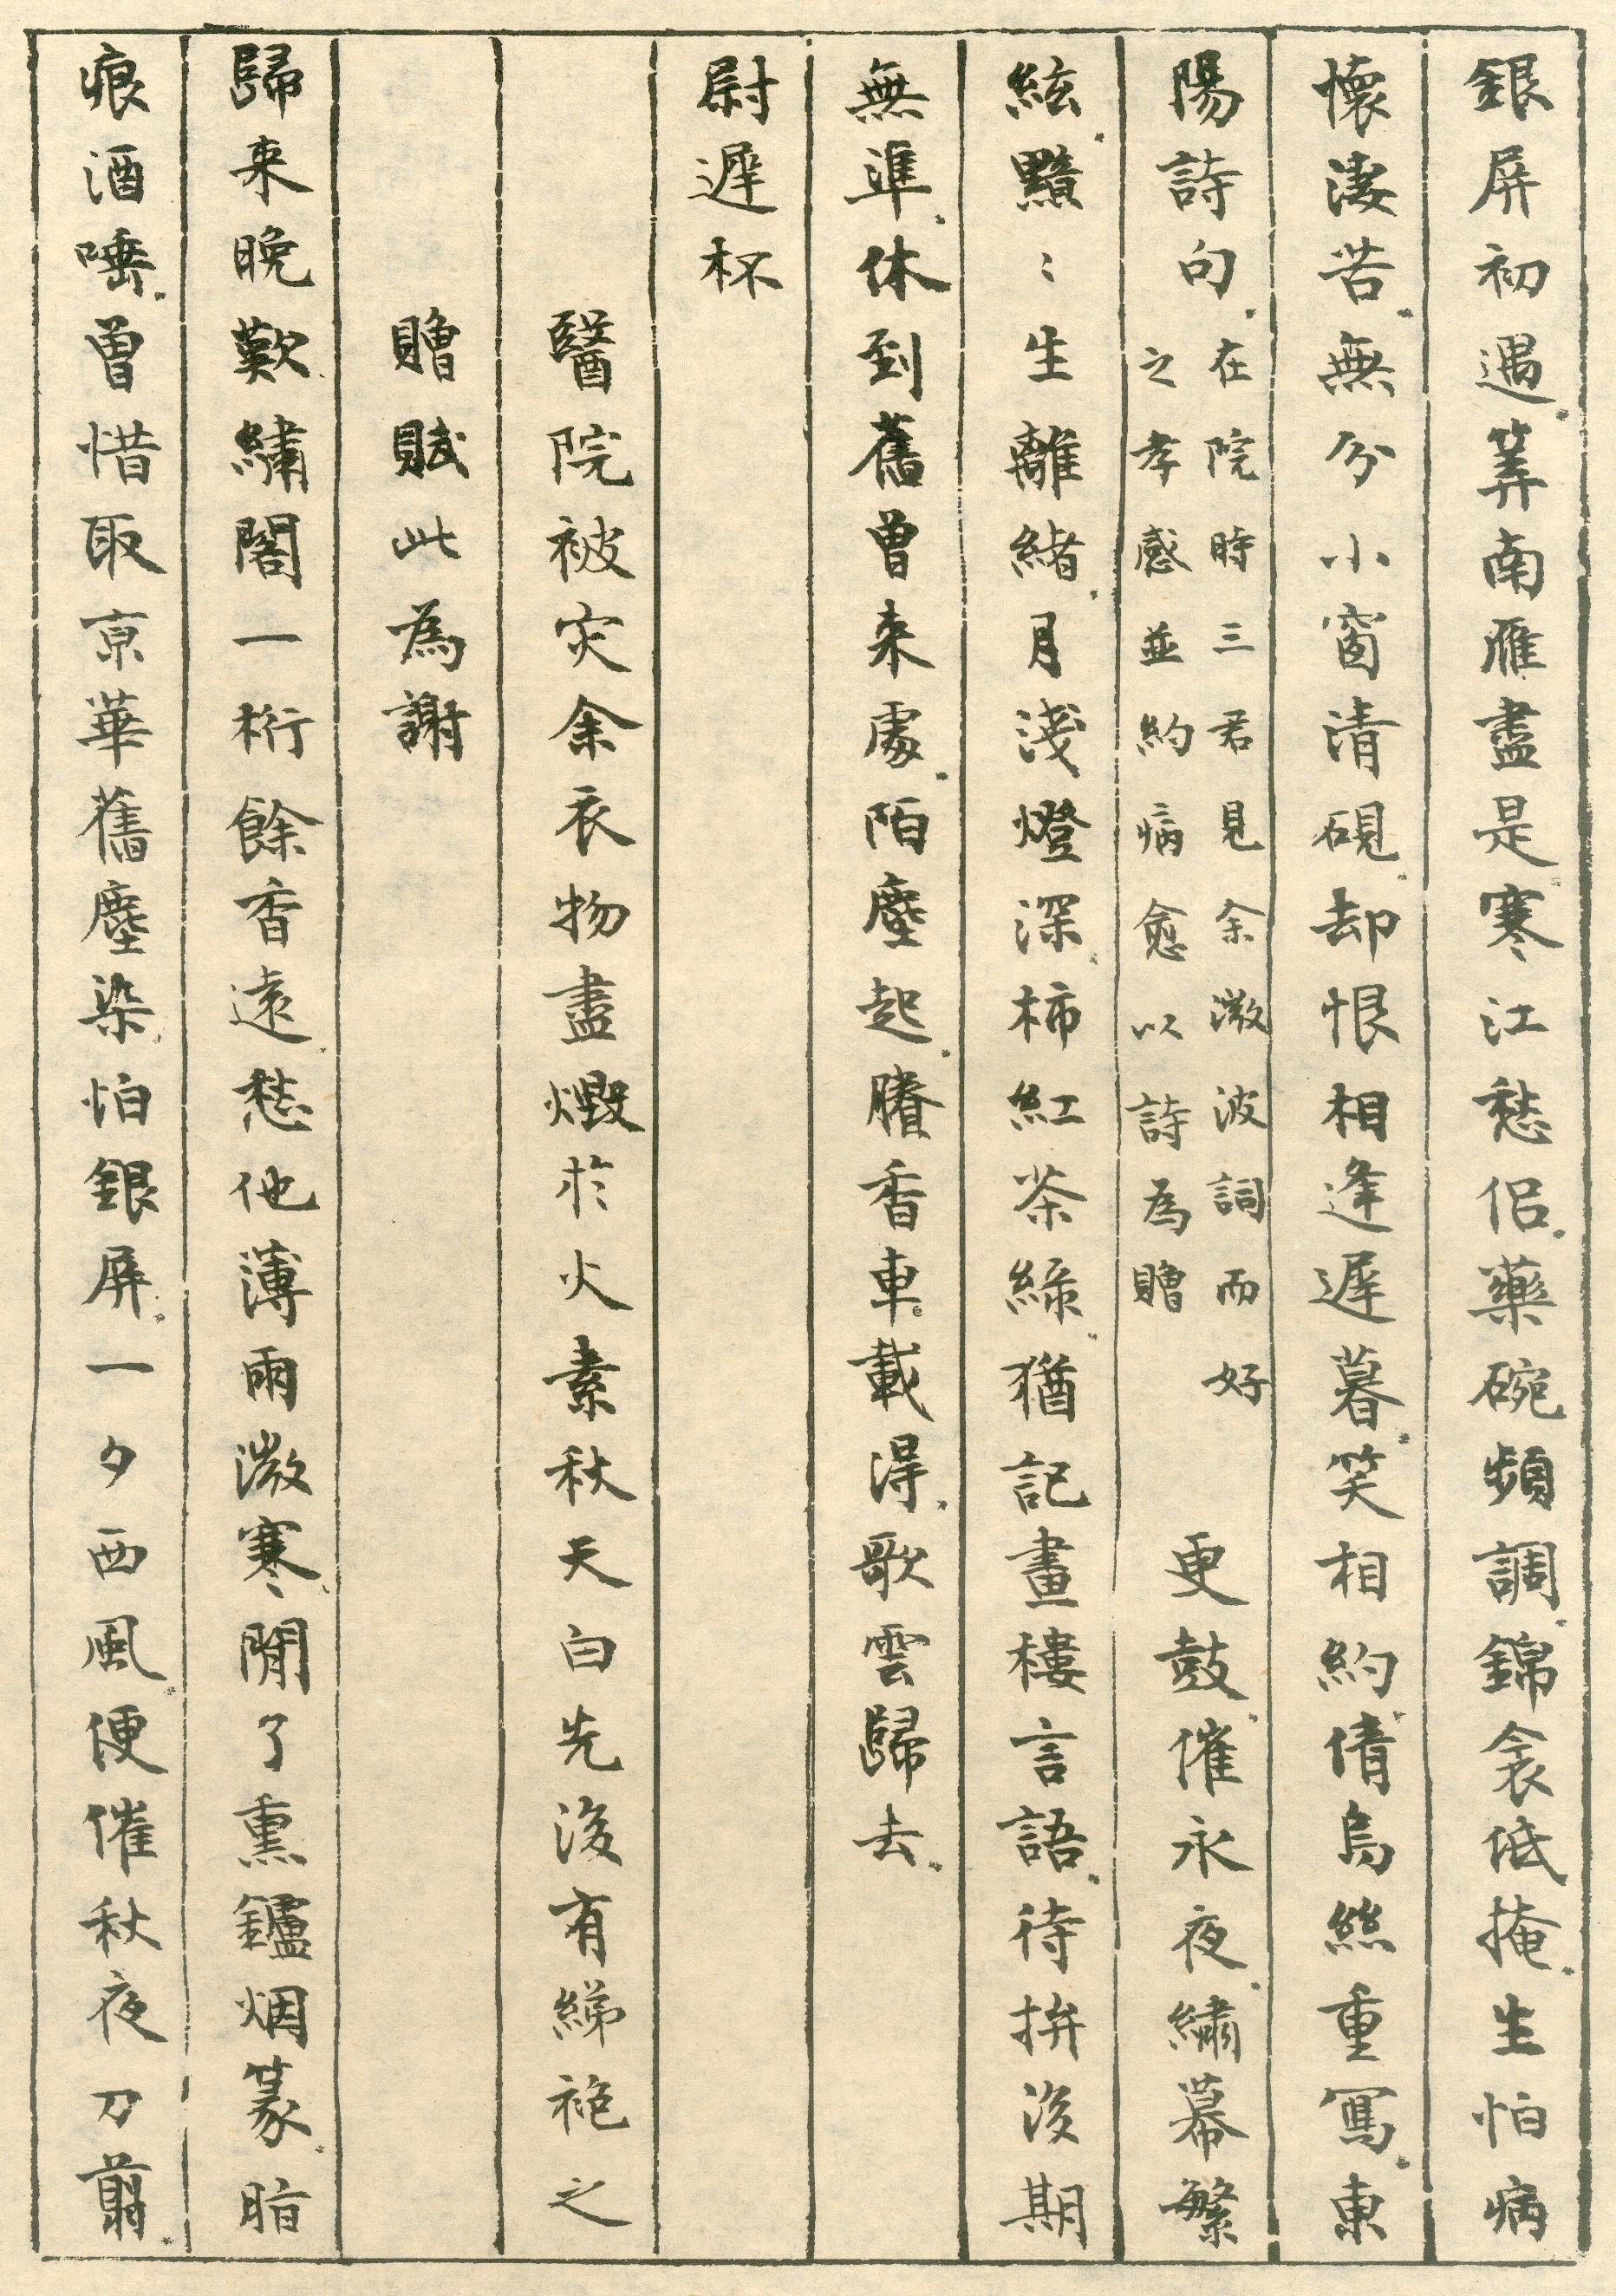 銀屏初遇算南雁盡是寒江愁侶藥碗頻調錦衾低掩生怕病
懷淒苦無分小窗清硯却恨相逢遲暮笑相約倩烏絲重寫東
陽詩句在院時三君見余微波詞而好之孝感並約病愈以詩為贈更鼓催永夜繡幕繁
絃黯〻生離緒月淺燈深柿紅茶綠猶記畫樓言語待拚後期
無準休到舊曾來處陌塵起賸香車載得歌雲歸去
尉遲杯
醫院被灾余衣物盡燬於火素秋天白先後有綈袍之
贈賦此為謝
歸来晚歎繡閣一桁餘香遠愁他薄雨微寒閒了熏鑪烟篆脂
痕酒唾曾惜取京華舊塵染怕銀屏一夕西風便催秋夜刀翦